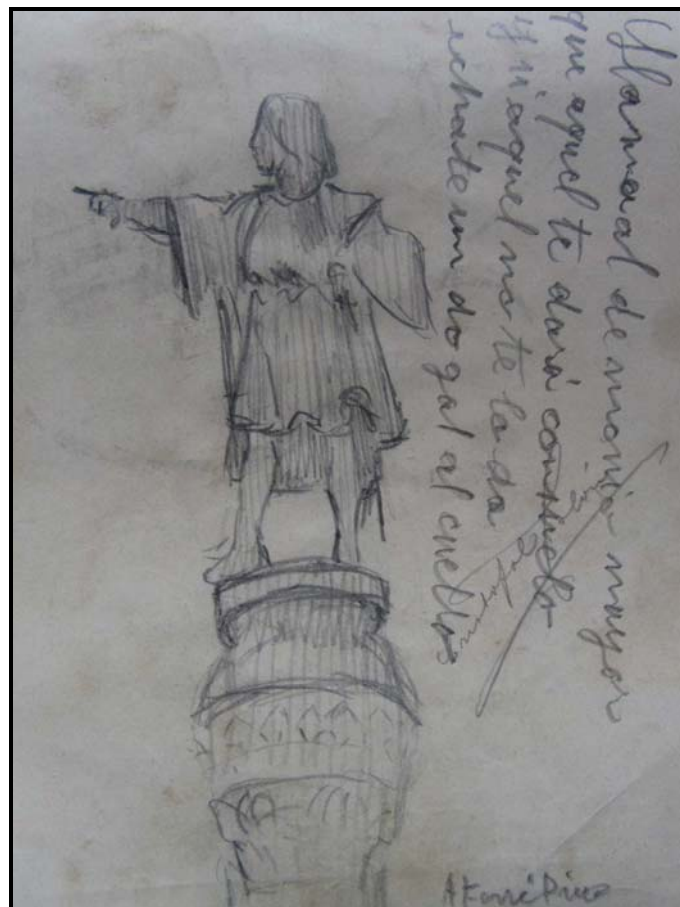 Llama al demonio mayor
que aquel te dará consuelo
y si aquel no te lo da
echate un dogal al cuello
A